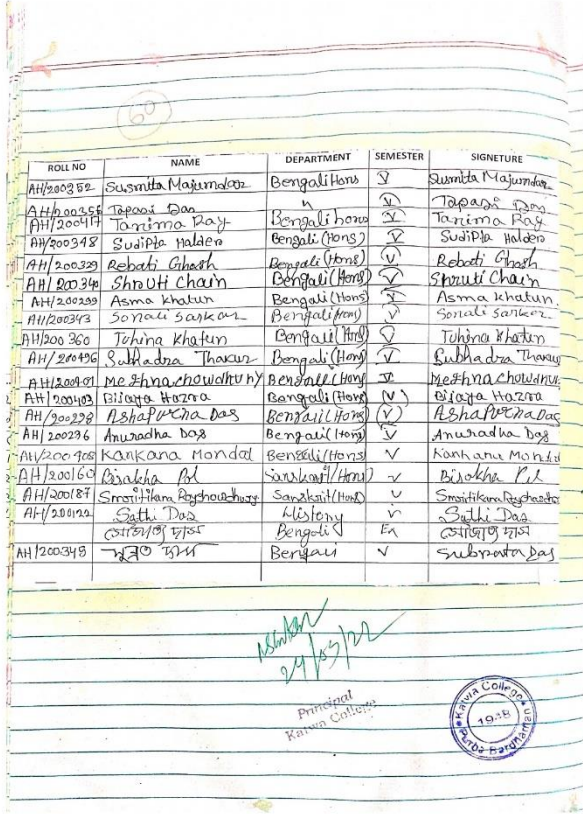 60
ROLL NO NAME DEPARTMENT SEMESTER SIGNETURE
AH/200352 Susmita Majumdar Bengali Hons V Susmita Majumdar
AH/200356 Tapasi Das " V Tapasi Das
AH/200417 Tanima Ray Bengali hons V Tanima Ray
AH/200348 Sudipta Halder Bengali (Hons) V Sudipta Halder
AH/200329 Rebati Ghosh Bengali (Hons) V Rebati Ghosh
AH/200340 Shruti Chain Bengali (Hons) V Shruti Chain
AH/200299 Asma Khatun Bengali (Hons) V Asma Khatun.
AH/200343 Sonali Sarkar Bengali (Hons) V Sonali Sarkar
AH/200360 Tuhina Khatun Bengali (Hons) V Tuhina Khatun
AH/200496 Subhadra Thakur Bengali (Hons) V Subhadra Thakur
AH/200401 Meghna chowdhury Bengali (Hons) V Meghna chowdhury
AH/200403 Bijaya Hazra Bangali (Hons) (V) Bijaya Hazra
AH/200298 Ashapurna Das Bengali (Hons) (V) Ashapurna Das
AH/200296 Anuradha Das Bengali (Hons) V Anuradha Das
AH/200408 Kankana Mondal Bengali (Hons) V Kankana Mondal
AH/200160 Bisakha Pal Sanskrit (Hons) V Bisakha Pal
AH/200187 Smritikana Raychowdhury Sanskrit (Hons) V Smritikana Raychowdhury
AH/200122 Sathi Das History V Sathi Das
দাস Bengali Ex দাস
AH/200349 সুব্রত দাস Bengali V Subrata Das
24/05/22
Principal
Katwa College
Katwa College
1948
Purba Bardhaman